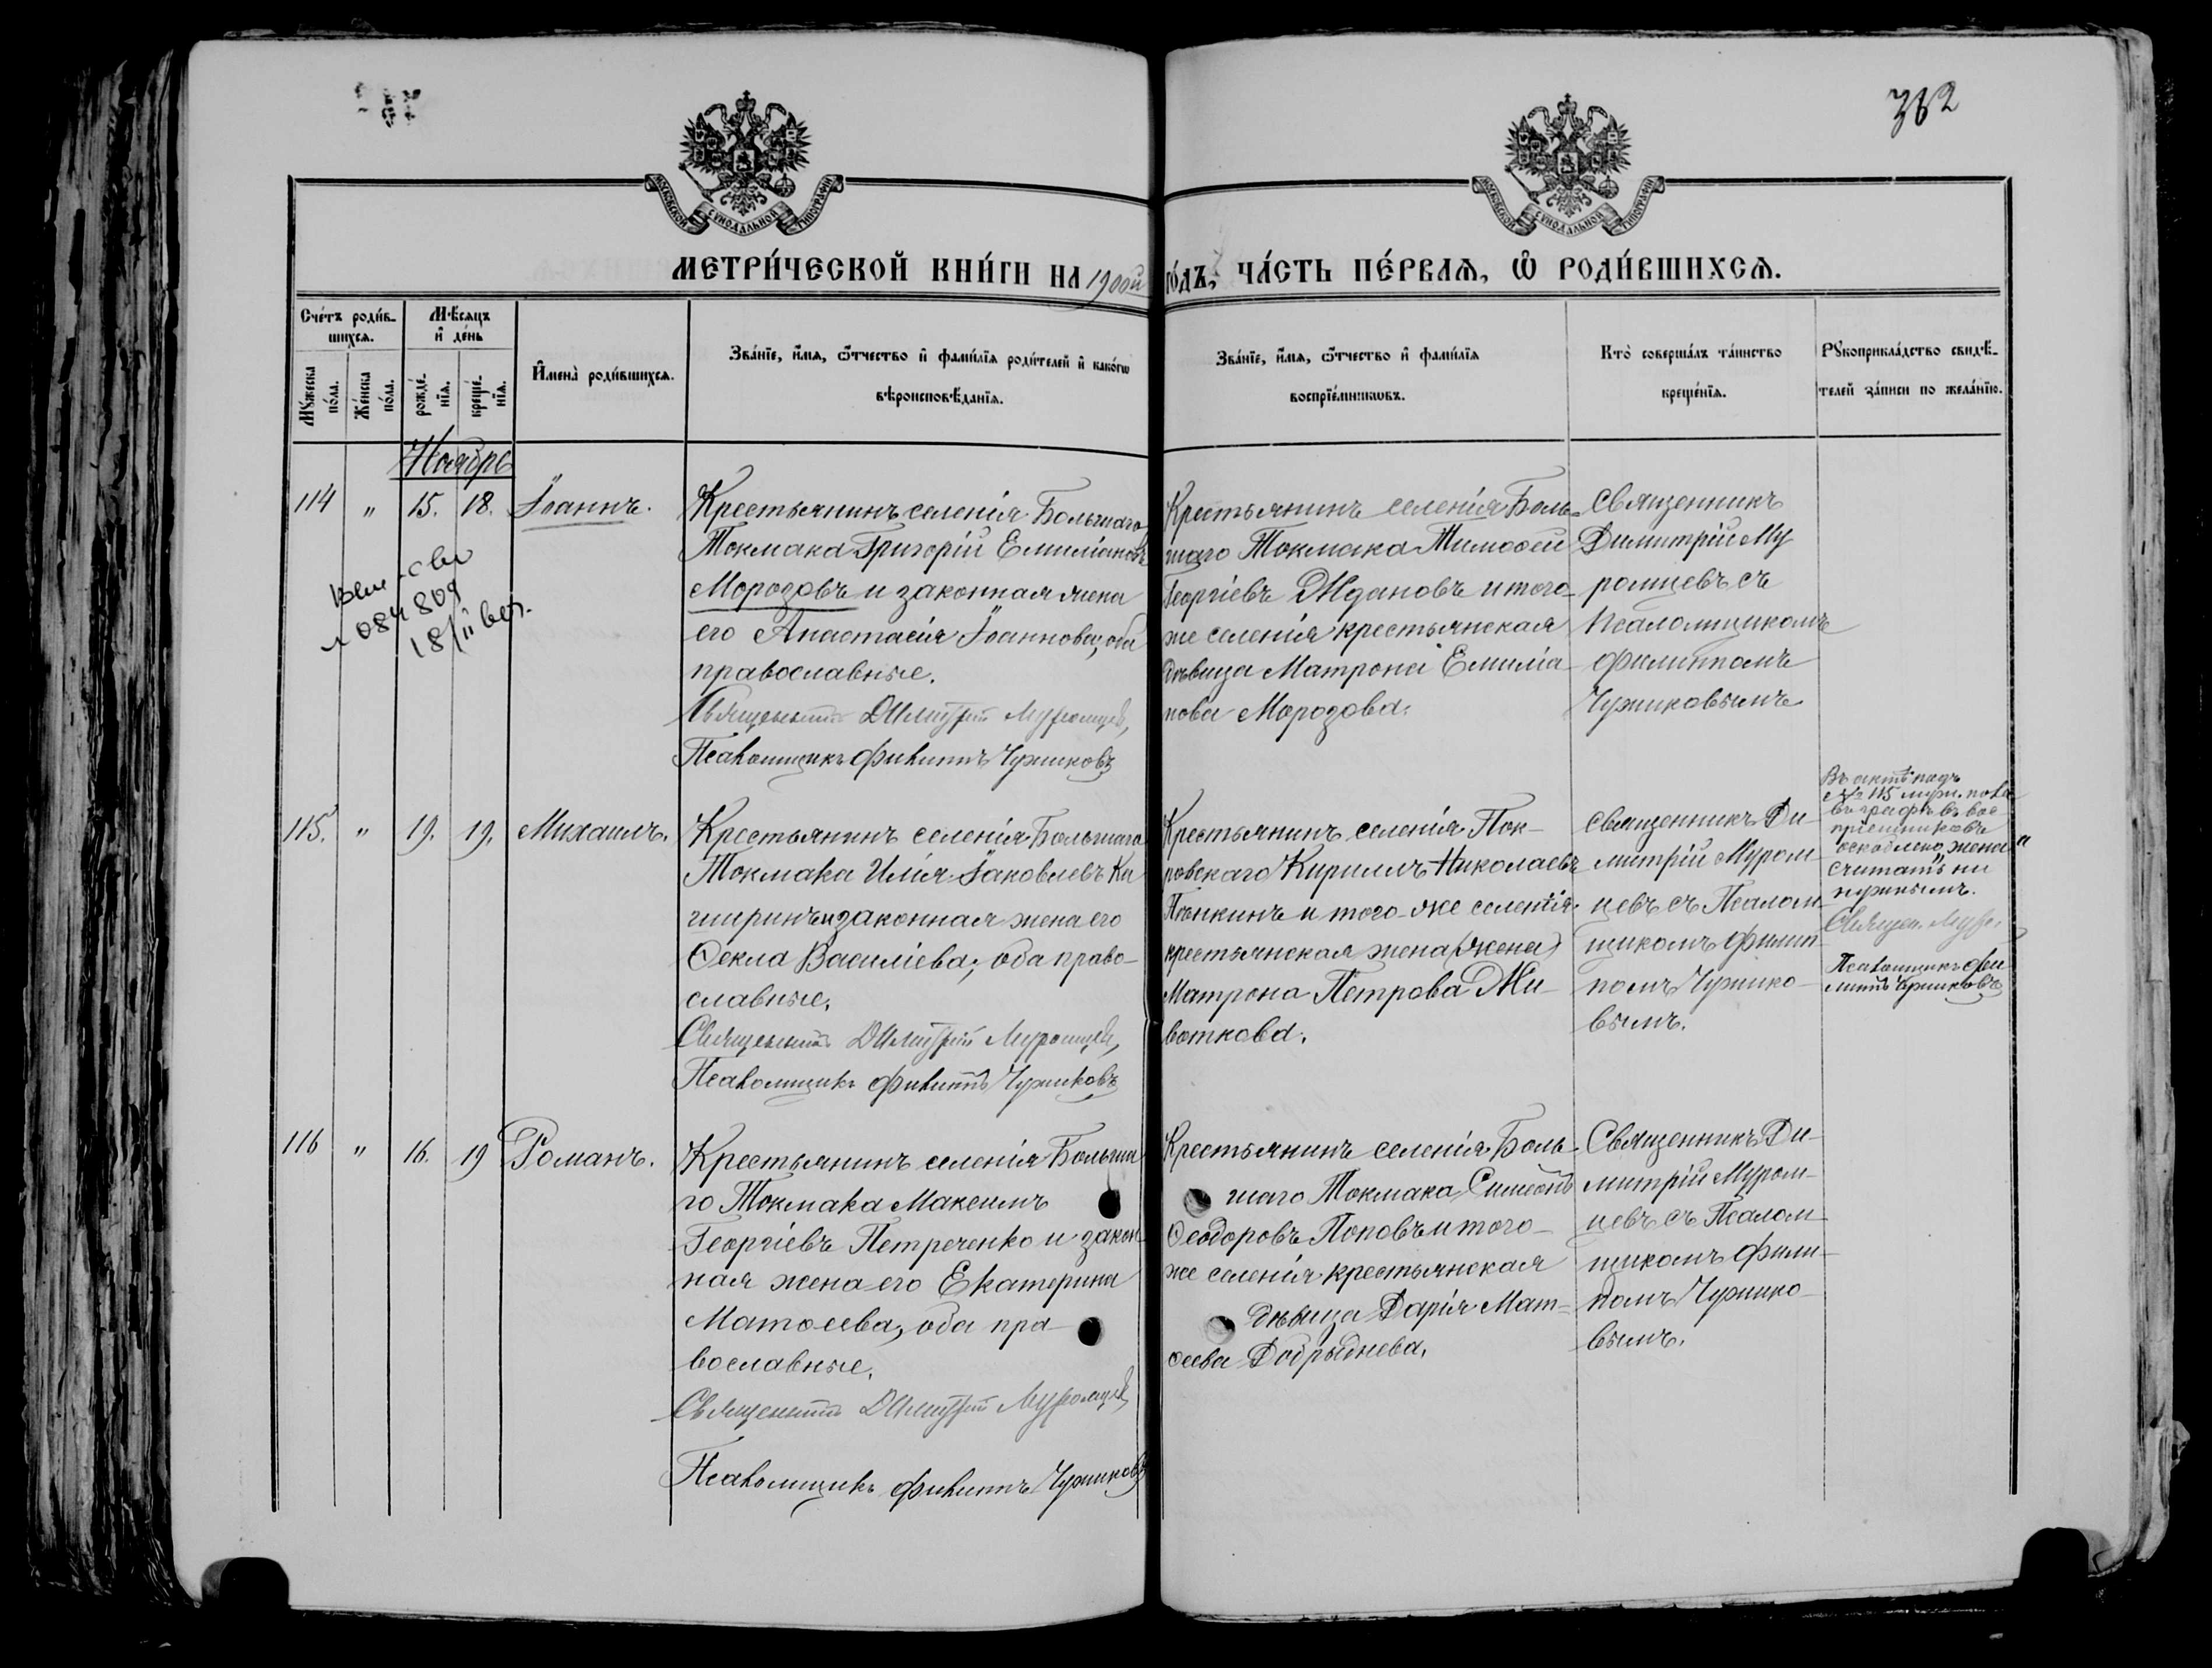 362
МОСКОВСКОЙ СУНОДАЛЬНОЙ ТИПОГРАФІИ
МОСКОВСКОЙ СУНОДАЛЬНОЙ ТИПОГРАФІИ
МЕТРИ́ЧЕСКОЙ КНИ́ГИ НА 1900й го́дъ, ЧА́СТЬ ПЕ́РВАѦ, Ѽ РОДИ́ВШИХСѦ.
Сче́тъ роди́в-
шихсѧ.
Мꙋ́жеска по́ла.
Же́нска по́ла.
Мѣ́сѧцъ
и҆ де́нь
рожде́-
нїѧ.
креще́-
нїѧ.
И҆мена̀ роди́вшихсѧ.
Зва́нїе, и҆́мѧ, ѻ҆́тчество и҆ фами́лїѧ роди́телей и҆ како́гѡ
вѣроисповѣ́данїѧ.
Зва́нїе, и҆́мѧ, ѻ҆́тчество и҆ фами́лїѧ
воспрїе́мникѡвъ.
Кто̀ соверша́лъ та́инство
креще́нїѧ.
Рꙋкоприкла́дство свидѣ́-
телей за́писи по жела́нїю.
Ноябрь
114 " 15. 18. Іоаннъ.
Крестьянинъ селенія Большаго
Токмака Григорій Емиліановъ
Морозовъ и законная жена
его Анастасія Іоаннова, оба
православные.
Священникъ Димитрій Муромцевъ,
Псаломщикъ Филиппъ Чужиковъ
Крестьянинъ селенія Боль-
шаго Токмака Тимоѳей
Георгіевъ Ждановъ и того-
же селенія крестьянская
дѣвица Матрона Емиліа-
нова Морозова.
Священникъ
Димитрій Му
ромцевъ съ
Псаломщикомъ
Филиппомъ
Чужиковымъ
084809
115. " 19. 19. Михаилъ.
Крестьянинъ селенія Большаго
Токмака Илія Іаковлевъ Ка
ширинъ и законная жена его
Ѳекла Василіева, оба право-
славные.
Священникъ Димитрій Муромцевъ,
Псаломщикъ Филиппъ Чужиковъ
Крестьянинъ селенія Пок-
ровскаго Кириллъ Николаевъ
и того-же селенія
крестьянская жена (жена)
Матрона Петрова Жи-
воткова.
Священникъ Ди
митрій Муром-
цевъ съ Псалом-
щикомъ Филип-
помъ Чужико-
вымъ.
Въ актѣ подъ
№ 115 муж. пола
въ графѣ въ вос
пріемниковъ
оскоблено „жена"
считать не
нужнымъ.
Священ. Муро.
Псаломщикъ Фи
липпъ Чужиковъ
116 " 16. 19 Романъ.
Крестьянинъ селенія Больша
го Токмака Максимъ
Георгіевъ Петреченко и закон
ная жена его Екатерина
Матѳеева, оба пра-
вославные.
Священникъ Димитрій Муромцевъ
Псаломщикъ Филиппъ Чужиковъ
Крестьянинъ селенія Боль-
шаго Токмака Симеонъ
Ѳеодоровъ Поповъ и того-
же селенія крестьянская
дѣвица Дарія Мат-
ѳеева Добрыднева.
Священникъ Ди-
митрій Муром-
цевъ съ Псалом-
щикомъ Фили-
помъ Чужико-
вымъ.